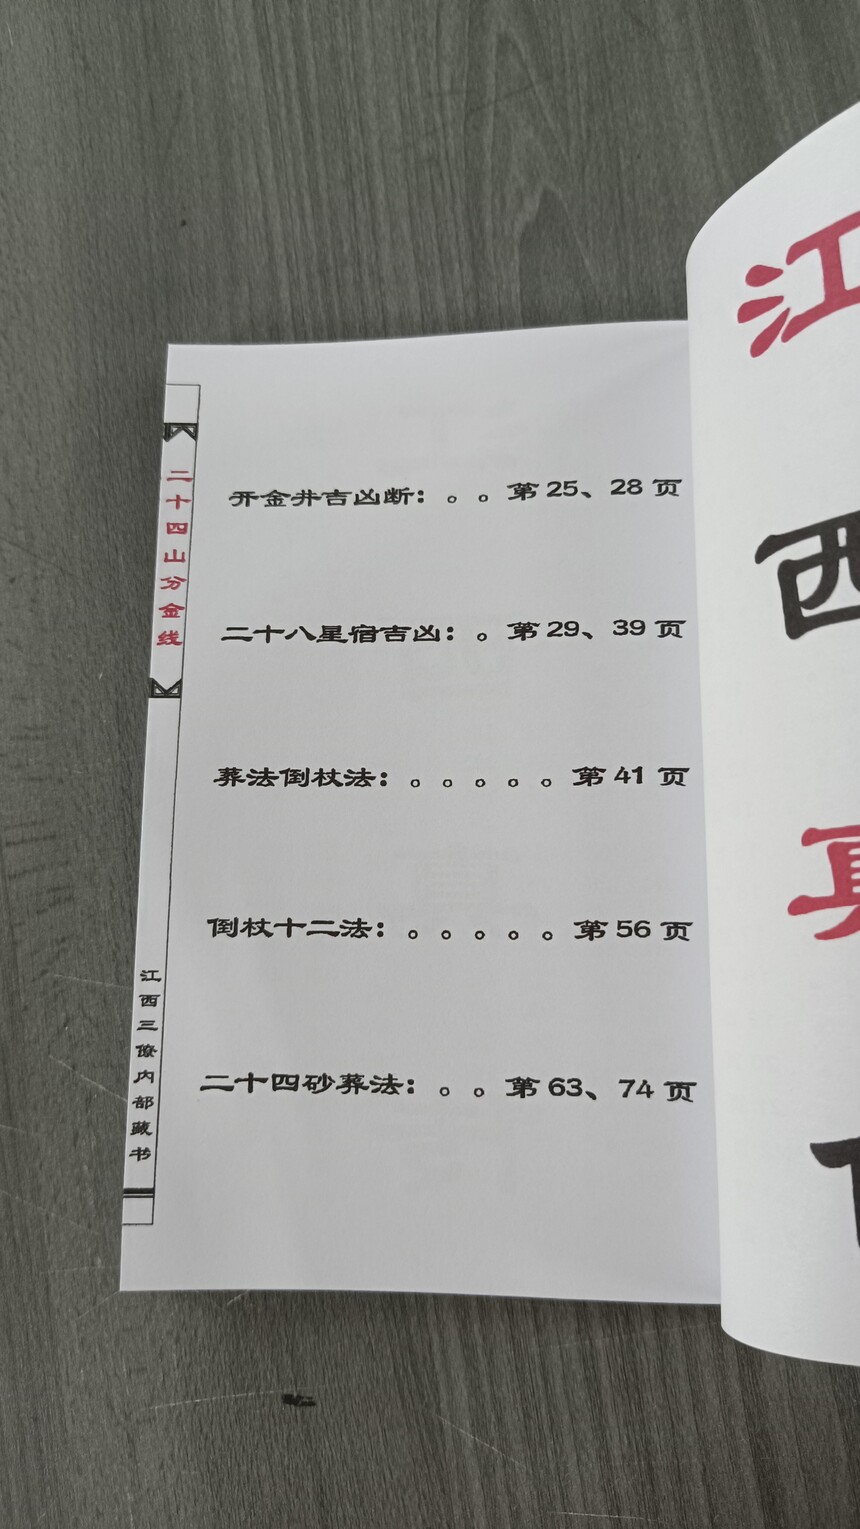 二十四山分金线
江西三僚内部藏书
开金井吉凶断：。。第25、28页
二十八星宿吉凶：。第29、39页
葬法倒杖法：。。。。。第41页
倒杖十二法：。。。。。第56页
二十四砂葬法：。。第63、74页
江
西
真